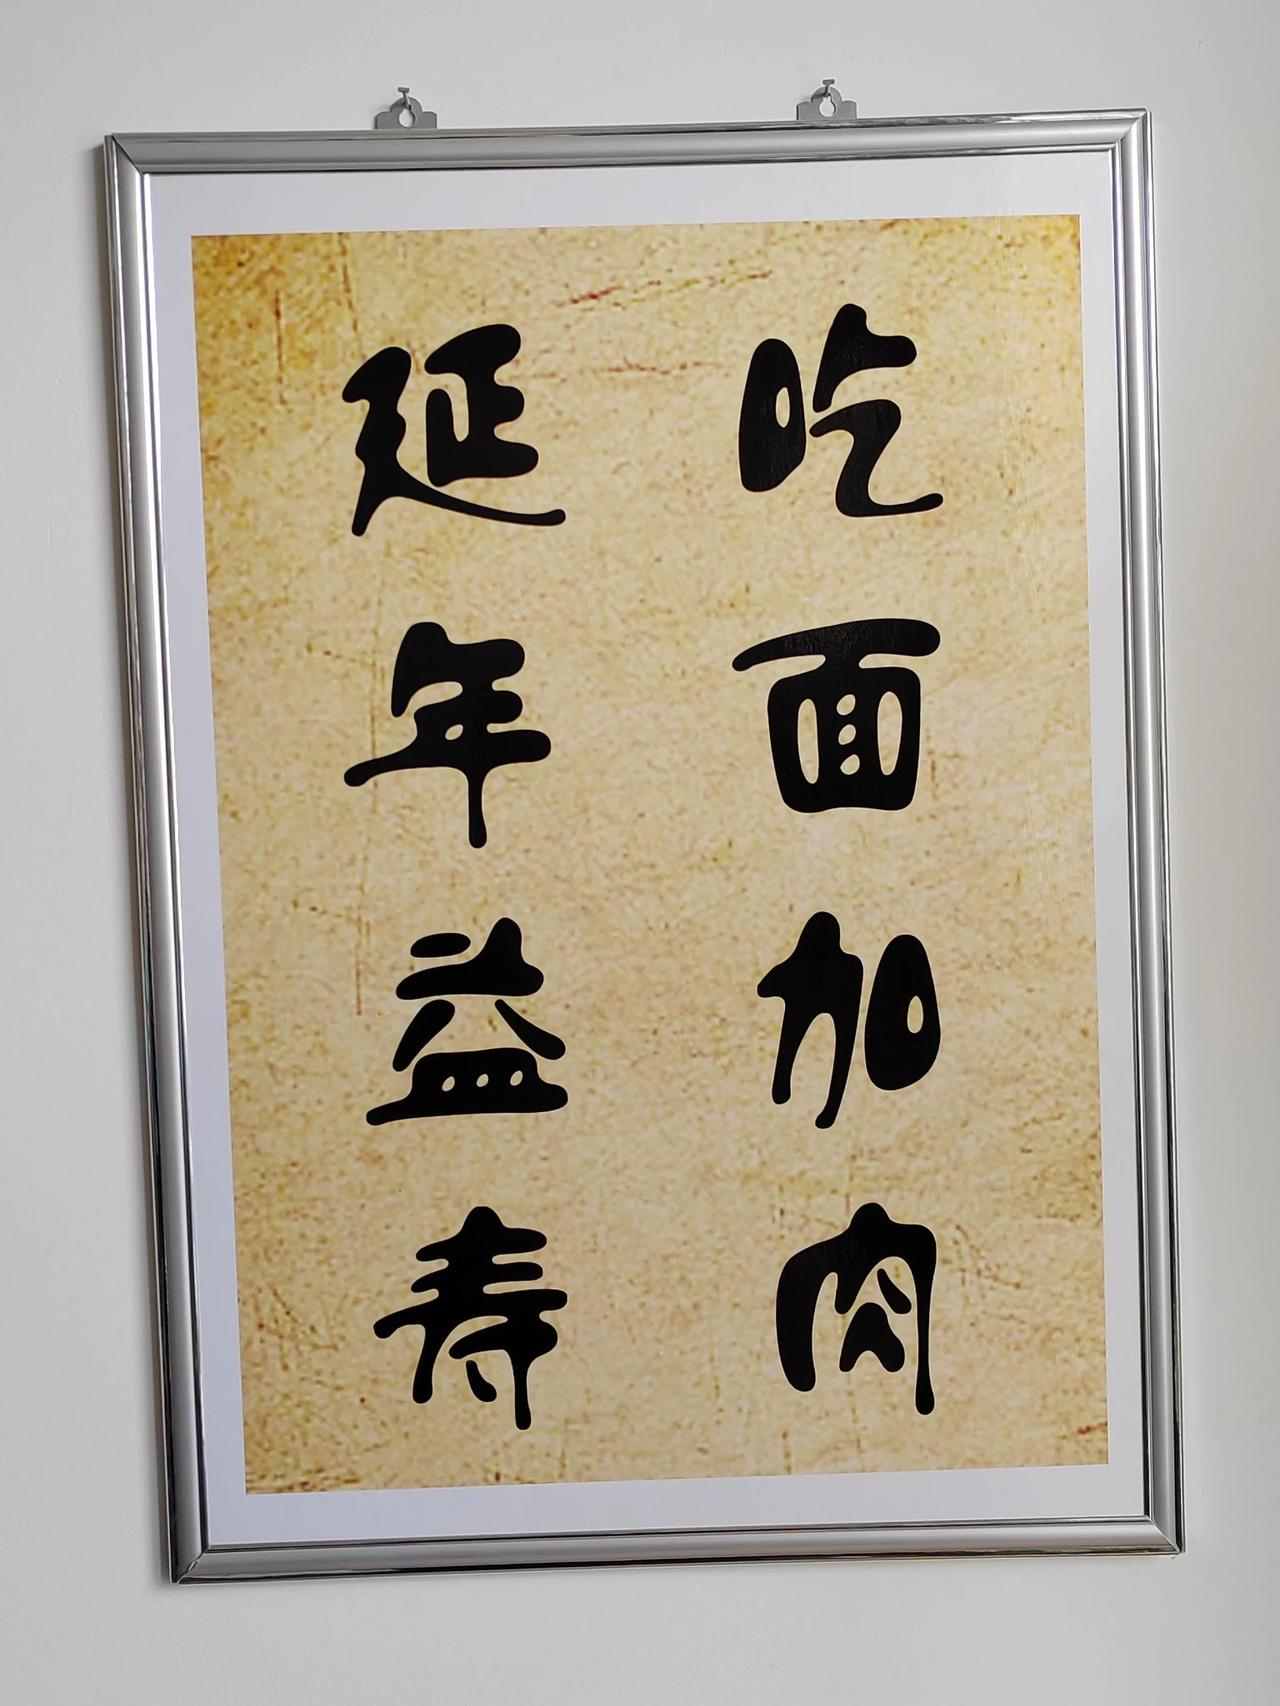 吃面加肉
延年益寿